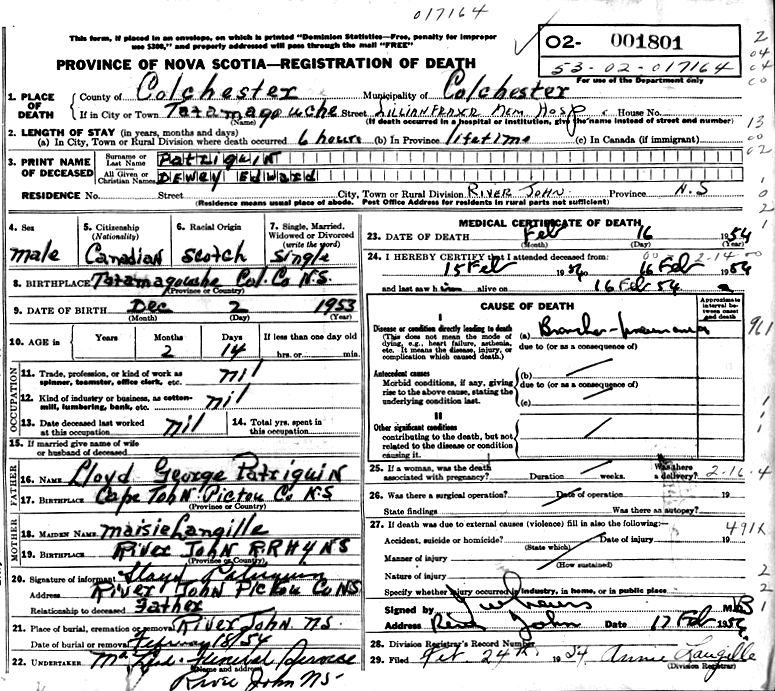 017164
This form, if placed in an envelope, on which is printed "Dominion Statistics—Free, penalty for improper
use $300," and properly addressed will pass through the mail "FREE"
02- 001801
53-02-017164
For use of the Department only
PROVINCE OF NOVA SCOTIA—REGISTRATION OF DEATH
1. PLACE OF DEATH County of Colchester Municipality of Colchester
If in City or Town Tatamagouche Street Lillian Fraser Mem. Hosp House No.
(Name) (If death occurred in a hospital or institution, give the name instead of street and number)
2. LENGTH OF STAY (in years, months and days)
(a) In City, Town or Rural Division where death occurred 6 hours (b) In Province lifetime (c) In Canada (if immigrant)
3. PRINT NAME OF DECEASED Surname or Last Name Patriquin
All Given or Christian Names Dewey Edward
RESIDENCE No. Street City, Town or Rural Division River John Province N.S
(Residence means usual place of abode. Post Office Address for residents in rural parts not sufficient)
4. Sex male
5. Citizenship (Nationality) Canadian
6. Racial Origin Scotch
7. Single, Married, Widowed or Divorced (write the word) Single
8. BIRTHPLACE Tatamagouche Col. Co N.S.
(Province or Country)
9. DATE OF BIRTH Dec 2 1953
(Month) (Day) (Year)
10. AGE in Years Months 2 Days 14 If less than one day old hrs. or min.
OCCUPATION
11. Trade, profession, or kind of work as spinner, teamster, office clerk, etc. nil
12. Kind of industry or business, as cotton-mill, lumbering, bank, etc. nil
13. Date deceased last worked at this occupation nil 14. Total yrs. spent in this occupation
15. If married give name of wife or husband of deceased
FATHER
16. NAME Lloyd George Patriquin
17. BIRTHPLACE Cape John Pictou Co N.S
(Province or Country)
MOTHER
18. MAIDEN NAME Maisie Langille
19. BIRTHPLACE River John R.R. N.S
(Province or Country)
20. Signature of informant Lloyd Patriquin
Address River John Pictou Co NS
Relationship to deceased Father
21. Place of burial, cremation or removal River John N.S.
Date of burial or removal February 18/54
22. UNDERTAKER Funeral Service
(Name and address)
River John NS-
MEDICAL CERTIFICATE OF DEATH
23. DATE OF DEATH Feb 16 1954
(Month) (Day) (Year)
24. I HEREBY CERTIFY that I attended deceased from:
15 Feb 1954 to 16 Feb 1954
and last saw him alive on 16 Feb 54
CAUSE OF DEATH
Approximate interval between onset and death
I
Disease or condition directly leading to death (a) Broncho-pneumonia
(This does not mean the mode of dying, e.g., heart failure, asthenia, etc. It means the disease, injury, or complication which caused death.)
due to (or as a consequence of)
Antecedent causes (b)
Morbid conditions, if any, giving rise to the above cause, stating the underlying condition last.
due to (or as a consequence of)
(c)
II
Other significant conditions
contributing to the death, but not related to the disease or condition causing it.
25. If a woman, was the death associated with pregnancy? Duration weeks. Was there a delivery? 2-16-4
26. Was there a surgical operation? Date of operation 19
State findings Was there an autopsy?
27. If death was due to external causes (violence) fill in also the following:— 491X
Accident, suicide or homicide? Date of injury 19
(State which)
Manner of injury
(How sustained)
Nature of injury
Specify whether injury occurred in industry, in home, or in public place
Signed by M.D.
Address River John Date 17 Feb 1954
28. Division Registrar's Record Number
29. Filed Feb. 24th 1954 Annie Langille
(Division Registrar)